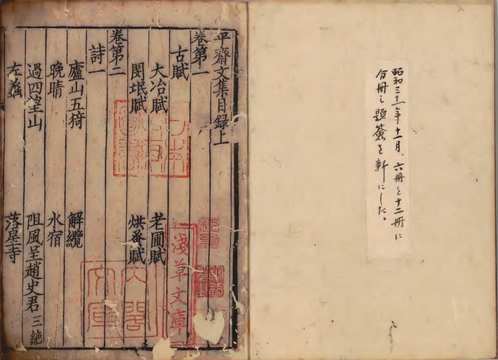 昭和三年十一月、六冊を十二冊に
分冊し題簽を新にした。
平齋文集目録上
卷第一
古賦
大冶賦 老圃賦
閔岷賦 烘蚤賦
卷第二
詩一
廬山五 解纜
晚晴 水宿
過四望山 阻風呈趙史君三絶
左蠡 落星寺
淺草文庫
内閣文庫